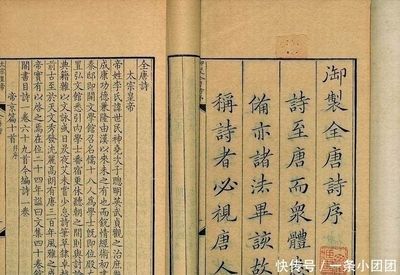 御製全唐詩序
詩至唐而衆體
備亦諸法畢該故
稱詩者必視唐人
全唐詩
太宗皇帝
帝姓李氏諱世民神堯次子聰明英武貞觀之治庶
成康功德兼隆由漢以來未之有也而銳情經術初
秦邸即開文學館召名儒十八人爲學士既即位殿
置弘文館悉引內學士番宿更休聽朝之間則與討論
典籍雜以文詠或日昃夜艾未嘗少怠詩筆草隸卓越
前古至於天文秀發沈麗高朗有唐三百年風雅之盛
帝實有以啓之焉在位二十四年諡曰文集四十卷
閣書目詩一卷六十九首今編詩一卷
帝京篇十首
快传号/一条小团团